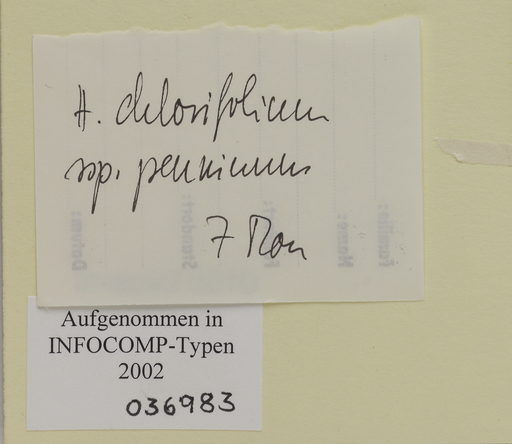 H. chlorifolium
ssp. penninum
7 Mon
Aufgenommen in
INFOCOMP-Typen
2002
036983